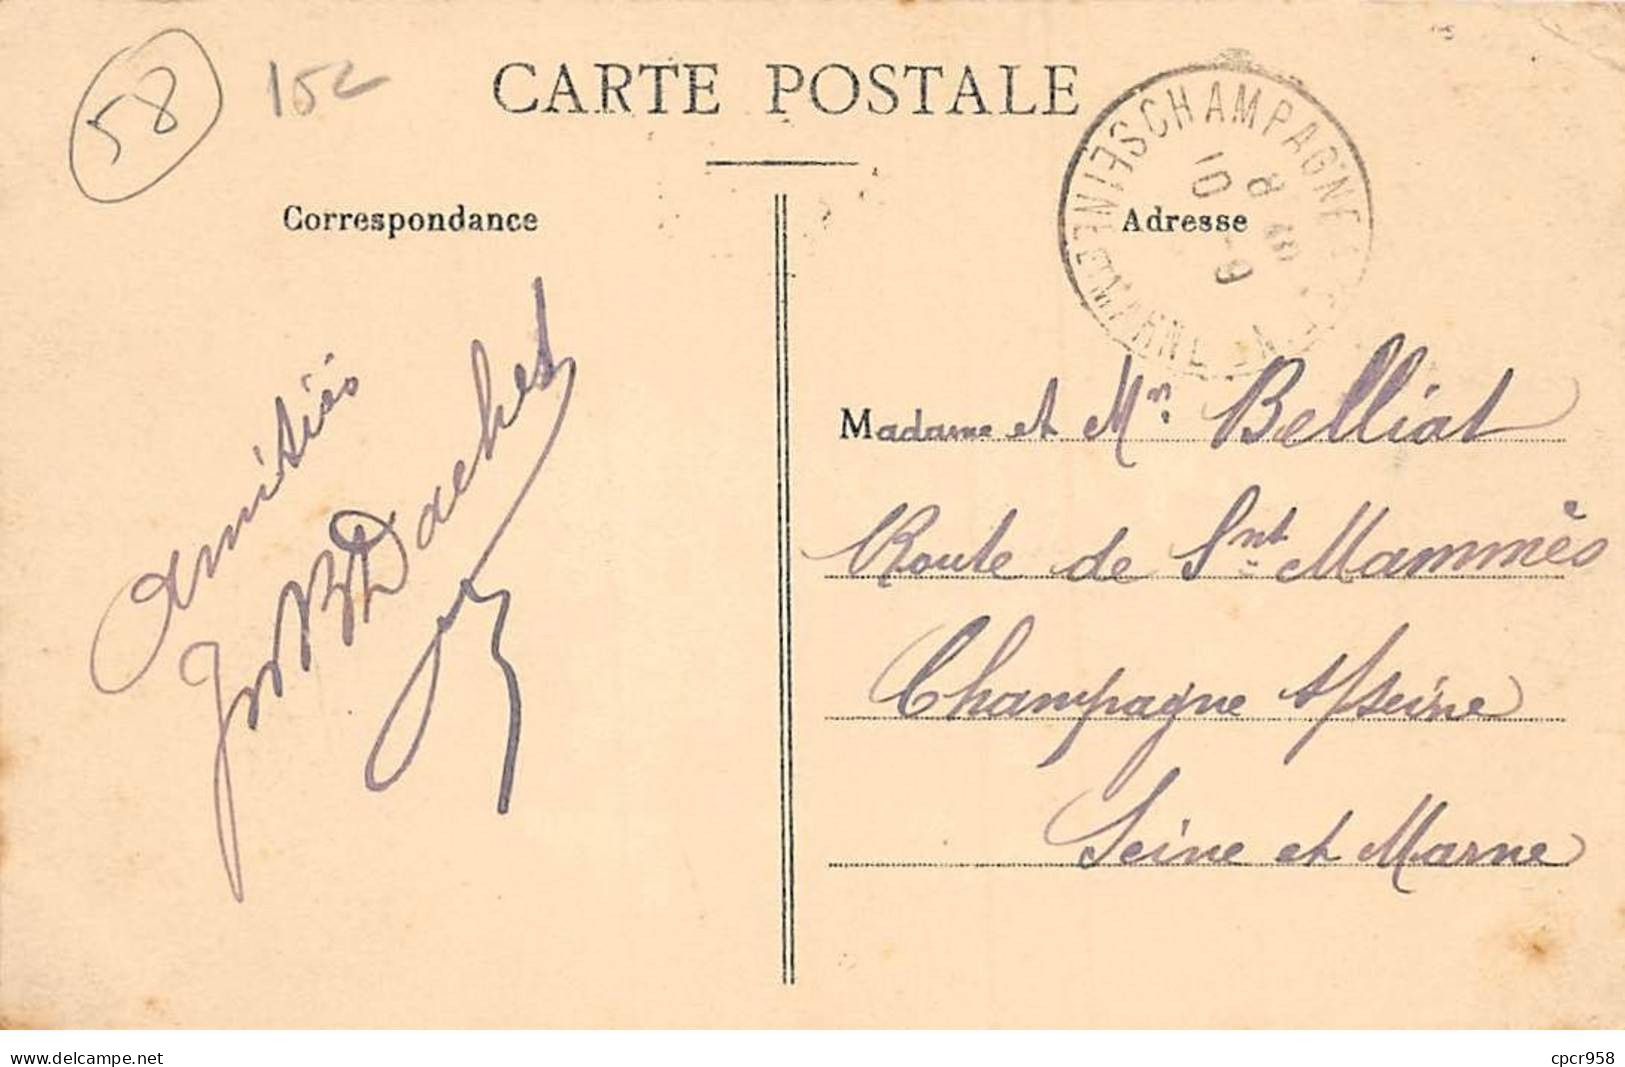 58
152
CARTE POSTALE
Correspondance
Adresse
CHAMPAGNE
10 8
Amitiés
Madame et Mr. Belliat
Route de Snt. Mammès
Champagne s/seine
Seine et Marne
www.delcampe.net
cpcr958